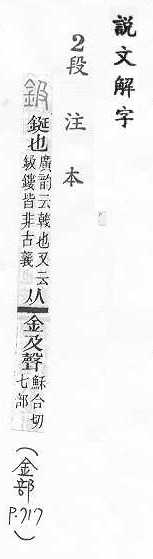 説文解字
2段注本
鈒 鋋也廣韵云戟也又云鈒鏤皆非古義从金及聲穌合切七部
(金部 P.717)